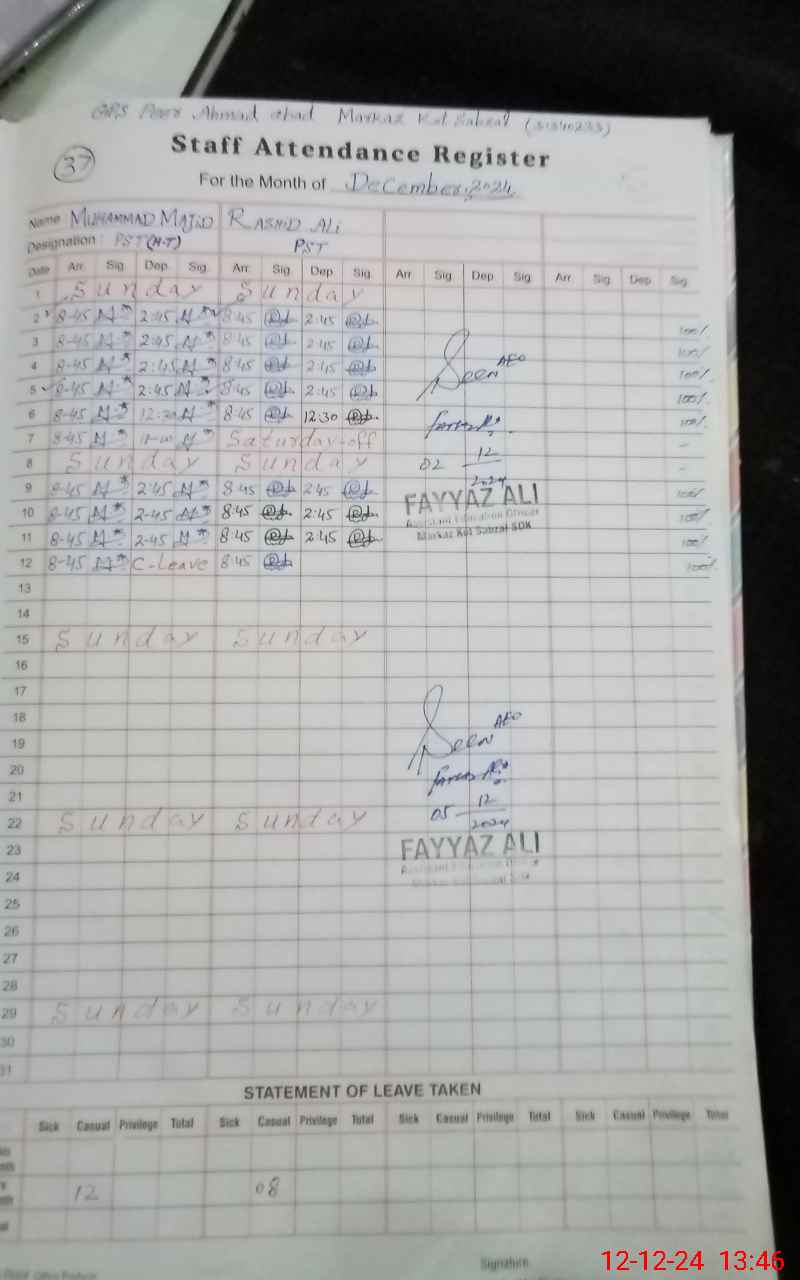 GPS Peer Ahmad abad Markaz Kot Sabzal (31340233)
37
Staff Attendance Register
For the Month of December, 2024
Name MUHAMMAD MAJID RASHID ALI
Designation: PST(H.T) PST
Date Arr. Sig. Dep. Sig. Arr. Sig. Dep. Sig. Arr. Sig. Dep. Sig. Arr. Sig. Dep. Sig.
1 Sunday Sunday
2 8-45 2:45 8:45 2:45 100%
3 8-45 2:45 8:45 2:45 100%
4 8-45 2:45 8:45 2:45 100%
5 8-45 2:45 8:45 2:45 100%
6 8-45 12:30 8:45 12:30 100%
7 8-45 Saturday-off -
8 Sunday Sunday -
9 8-45 2:45 8:45 2:45 100%
10 8-45 2-45 8:45 2:45 100%
11 8-45 2-45 8:45 2:45 100%
12 8-45 C-Leave 8:45 100%
Seen AEO
02 12 2024
FAYYAZ ALI
Assistant Education Officer
Markaz Kot Sabzal SDK
13
14
15 Sunday Sunday
16
17
18
19
20
21
22 Sunday Sunday
23
24
25
26
27
28
29 Sunday Sunday
30
31
Seen AEO
05 12 2024
FAYYAZ ALI
STATEMENT OF LEAVE TAKEN
Sick Casual Privilege Total Sick Casual Privilege Total Sick Casual Privilege Total Sick Casual Privilege Total
12 08
Signature
12-12-24 13:46